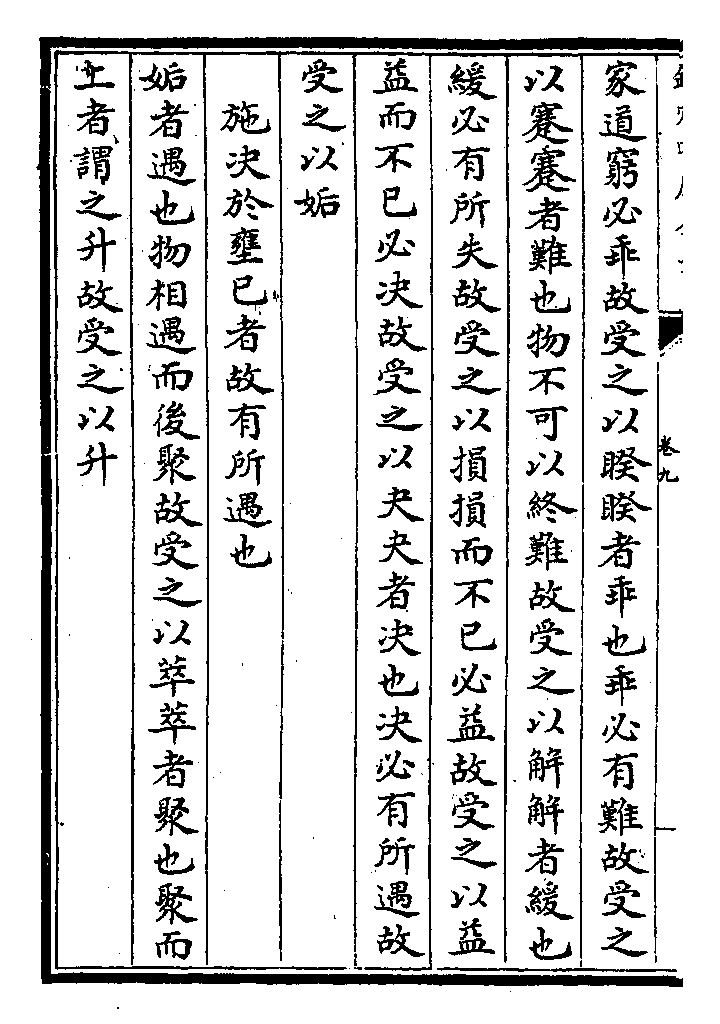 卷九
家道窮必乖故受之以睽睽者乖也乖必有難故受之
以蹇蹇者難也物不可以終難故受之以解解者緩也
緩必有所失故受之以損損而不已必益故受之以益
益而不已必決故受之以夬夬者決也決必有所遇故
受之以姤
施決於壅已者故有所遇也
姤者遇也物相遇而後聚故受之以萃萃者聚也聚而
上者謂之升故受之以升